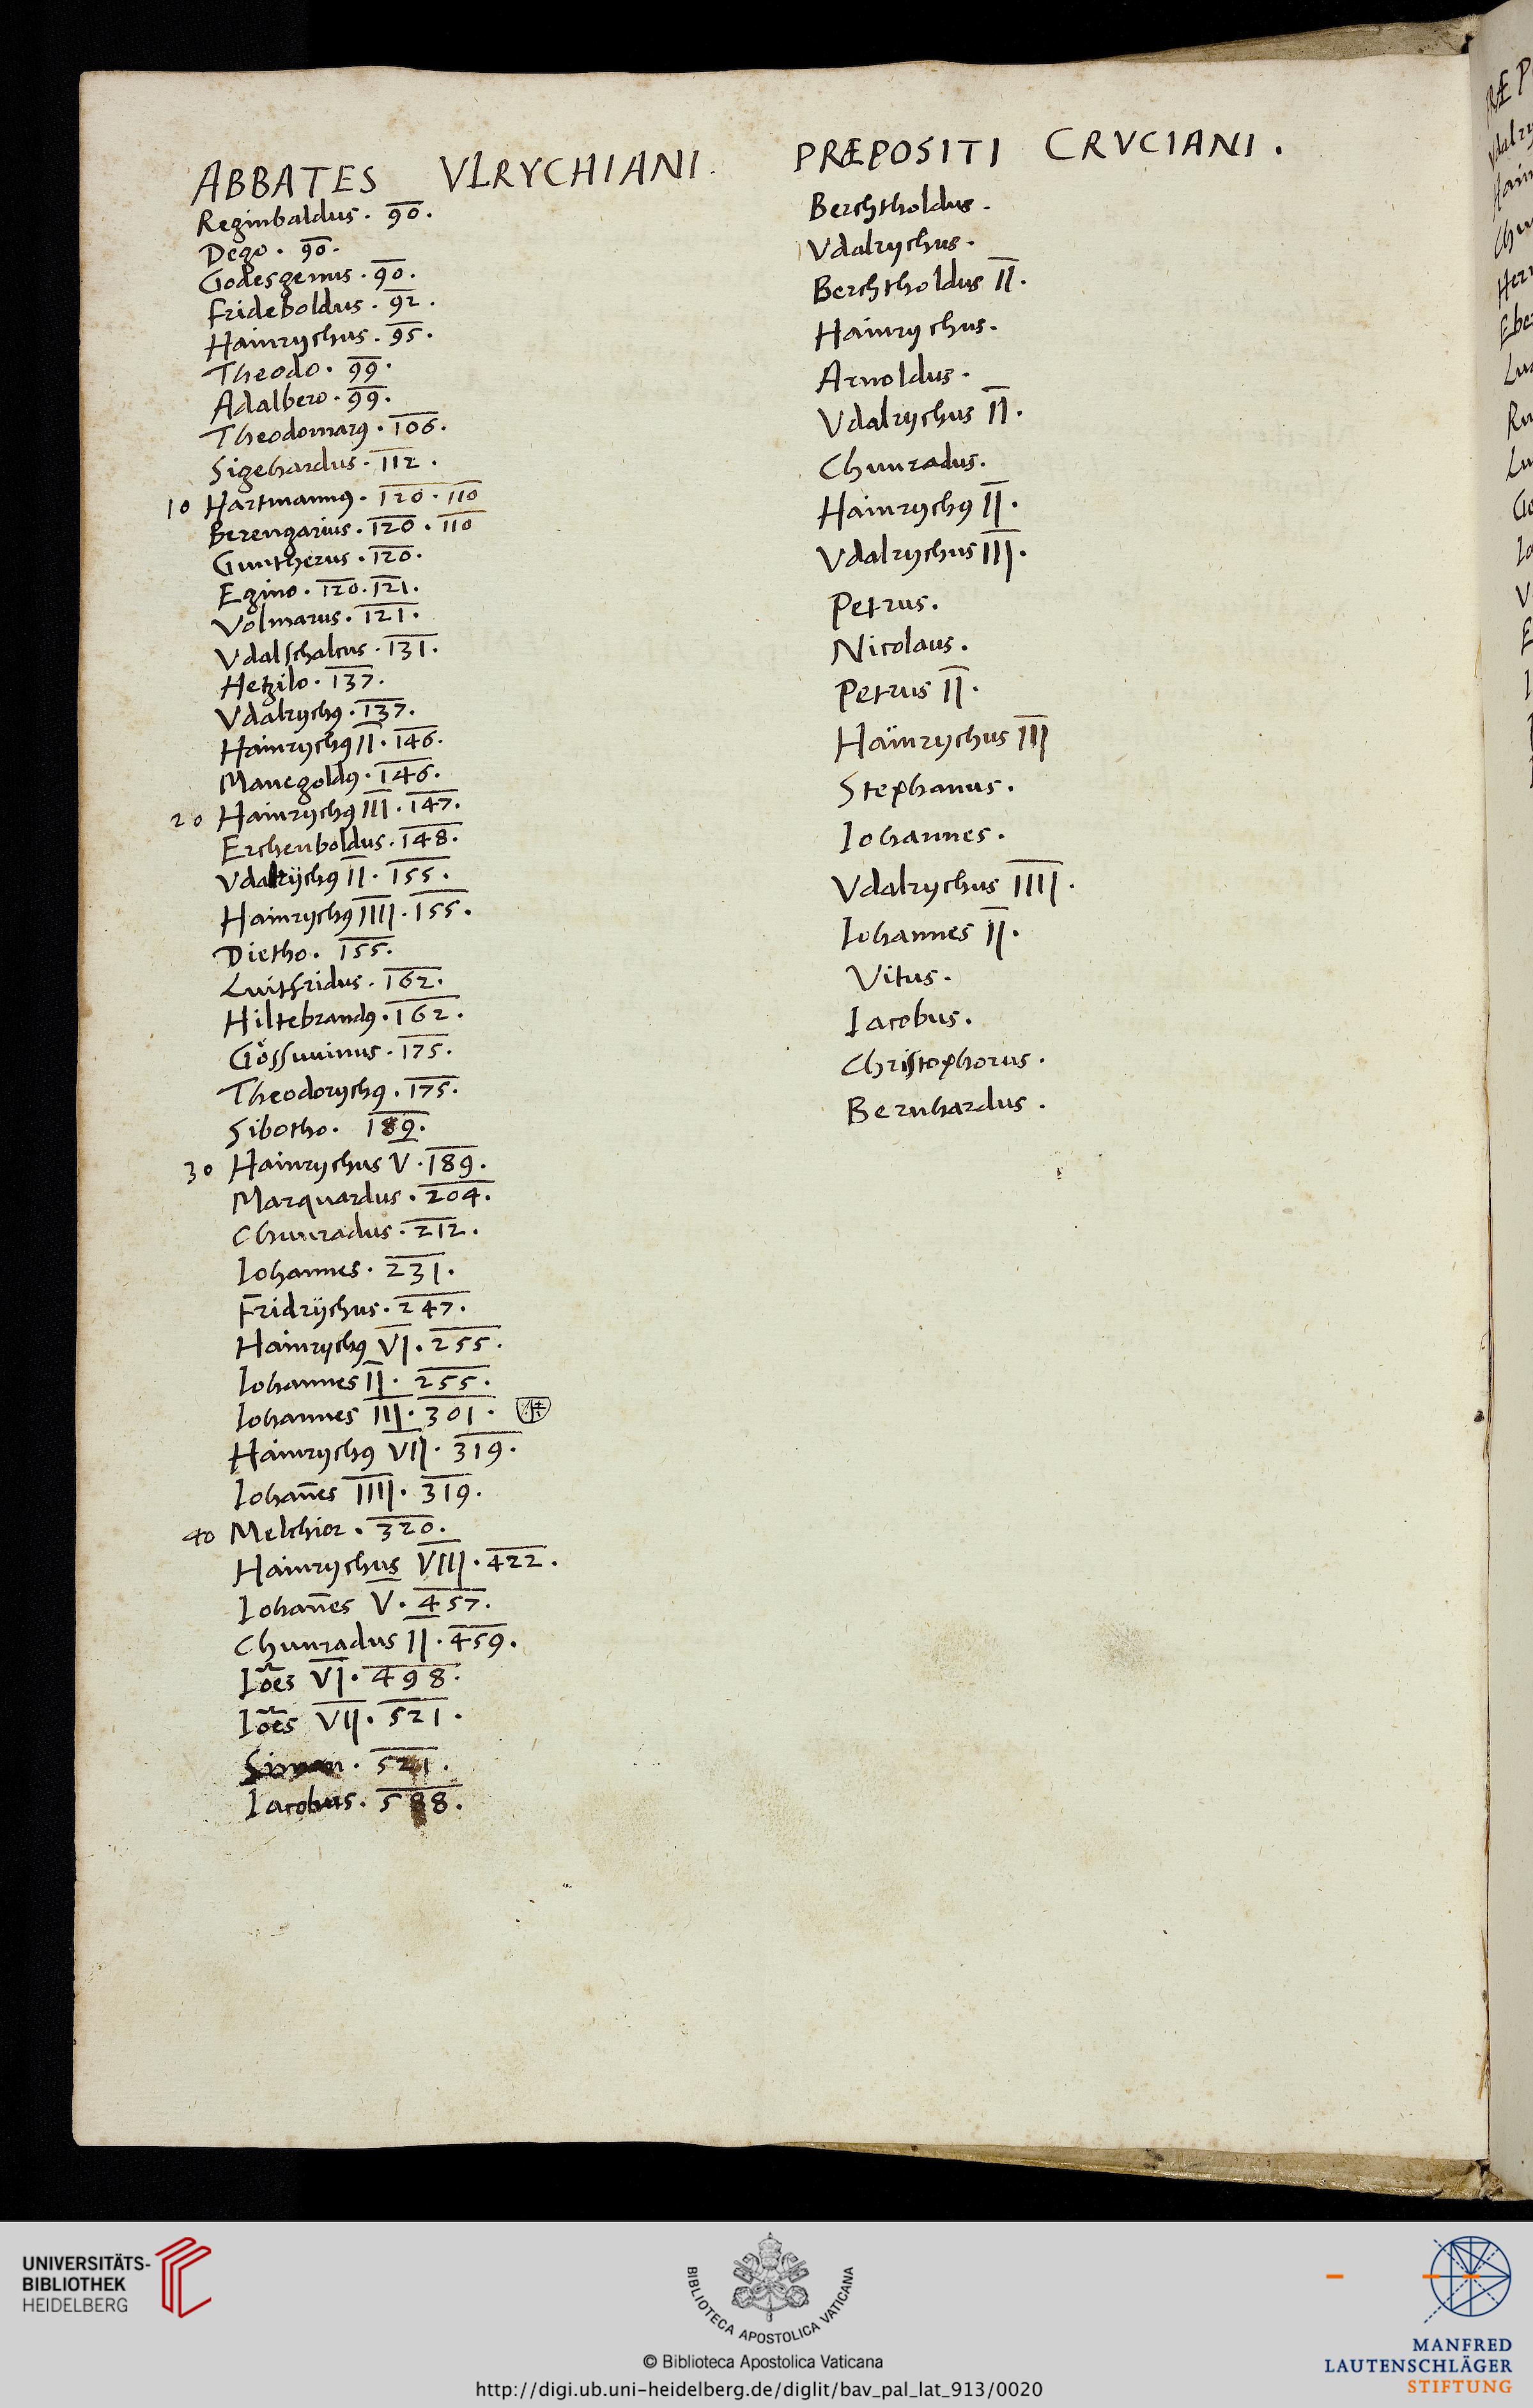 ABBATES VLRYCHIANI.
Reginbaldus. 90.
Dego. 90.
Godesgenus. 90.
Frideboldus. 92.
Hainrychus. 95.
Theodo. 99.
Adalbero. 99.
Theodomarꝰ. 106.
Sigehardus. 112.
10 Hartmannꝰ. 120. 110
Berengarius. 120. 110
Guntherus. 120.
Egino. 120. 121.
Volmarus. 121.
Vdalschalcus. 131.
Hetzilo. 137.
Vdalrychꝰ. 137.
Hainrychꝰ II. 146.
Manegoldꝰ. 146.
20 Hainrychꝰ III. 147.
Erchenboldus. 148.
Vdalrÿchꝰ II. 155.
Hainrychꝰ IIII. 155.
Dietho. 155.
Luitfridus. 162.
Hiltebrandꝰ. 162.
Gössuuinus. 175.
Theodorychꝰ. 175.
Sibotho. 189.
30 Hainrychus V. 189.
Marquardus. 204.
Chunradus. 212.
Iohannes. 231.
Fridrÿchus. 247.
Hainrychꝰ VI. 255.
Iohannes II. 255.
Iohannes III. 301.
Hainrychꝰ VII. 319.
Iohan̄es IIII. 319.
40 Melchior. 320.
Hainrychus VIII. 422.
Iohan̄es V. 457.
Chunradus II. 459.
Iões VI. 498.
Iões VII. 521.
Simon. 521.
Iacobus. 588.
PRÆPOSITI CRVCIANI.
Berchtholdus.
Vdalrychus.
Berchtholdus II.
Hainrychus.
Arnoldus.
Vdalrychus II.
Chunradus.
Hainrychꝰ II.
Vdalrychus III.
Petrus.
Nicolaus.
Petrus II.
Hainrychus III
Stephanus.
Iohannes.
Vdalrychus IIII.
Iohannes II.
Vitus.
Iacobus.
Christophorus.
Bernhardus.
UNIVERSITÄTS-
BIBLIOTHEK
HEIDELBERG
BIBLIOTECA APOSTOLICA VATICANA
© Biblioteca Apostolica Vaticana
http://digi.ub.uni-heidelberg.de/diglit/bav_pal_lat_913/0020
MANFRED
LAUTENSCHLÄGER
STIFTUNG